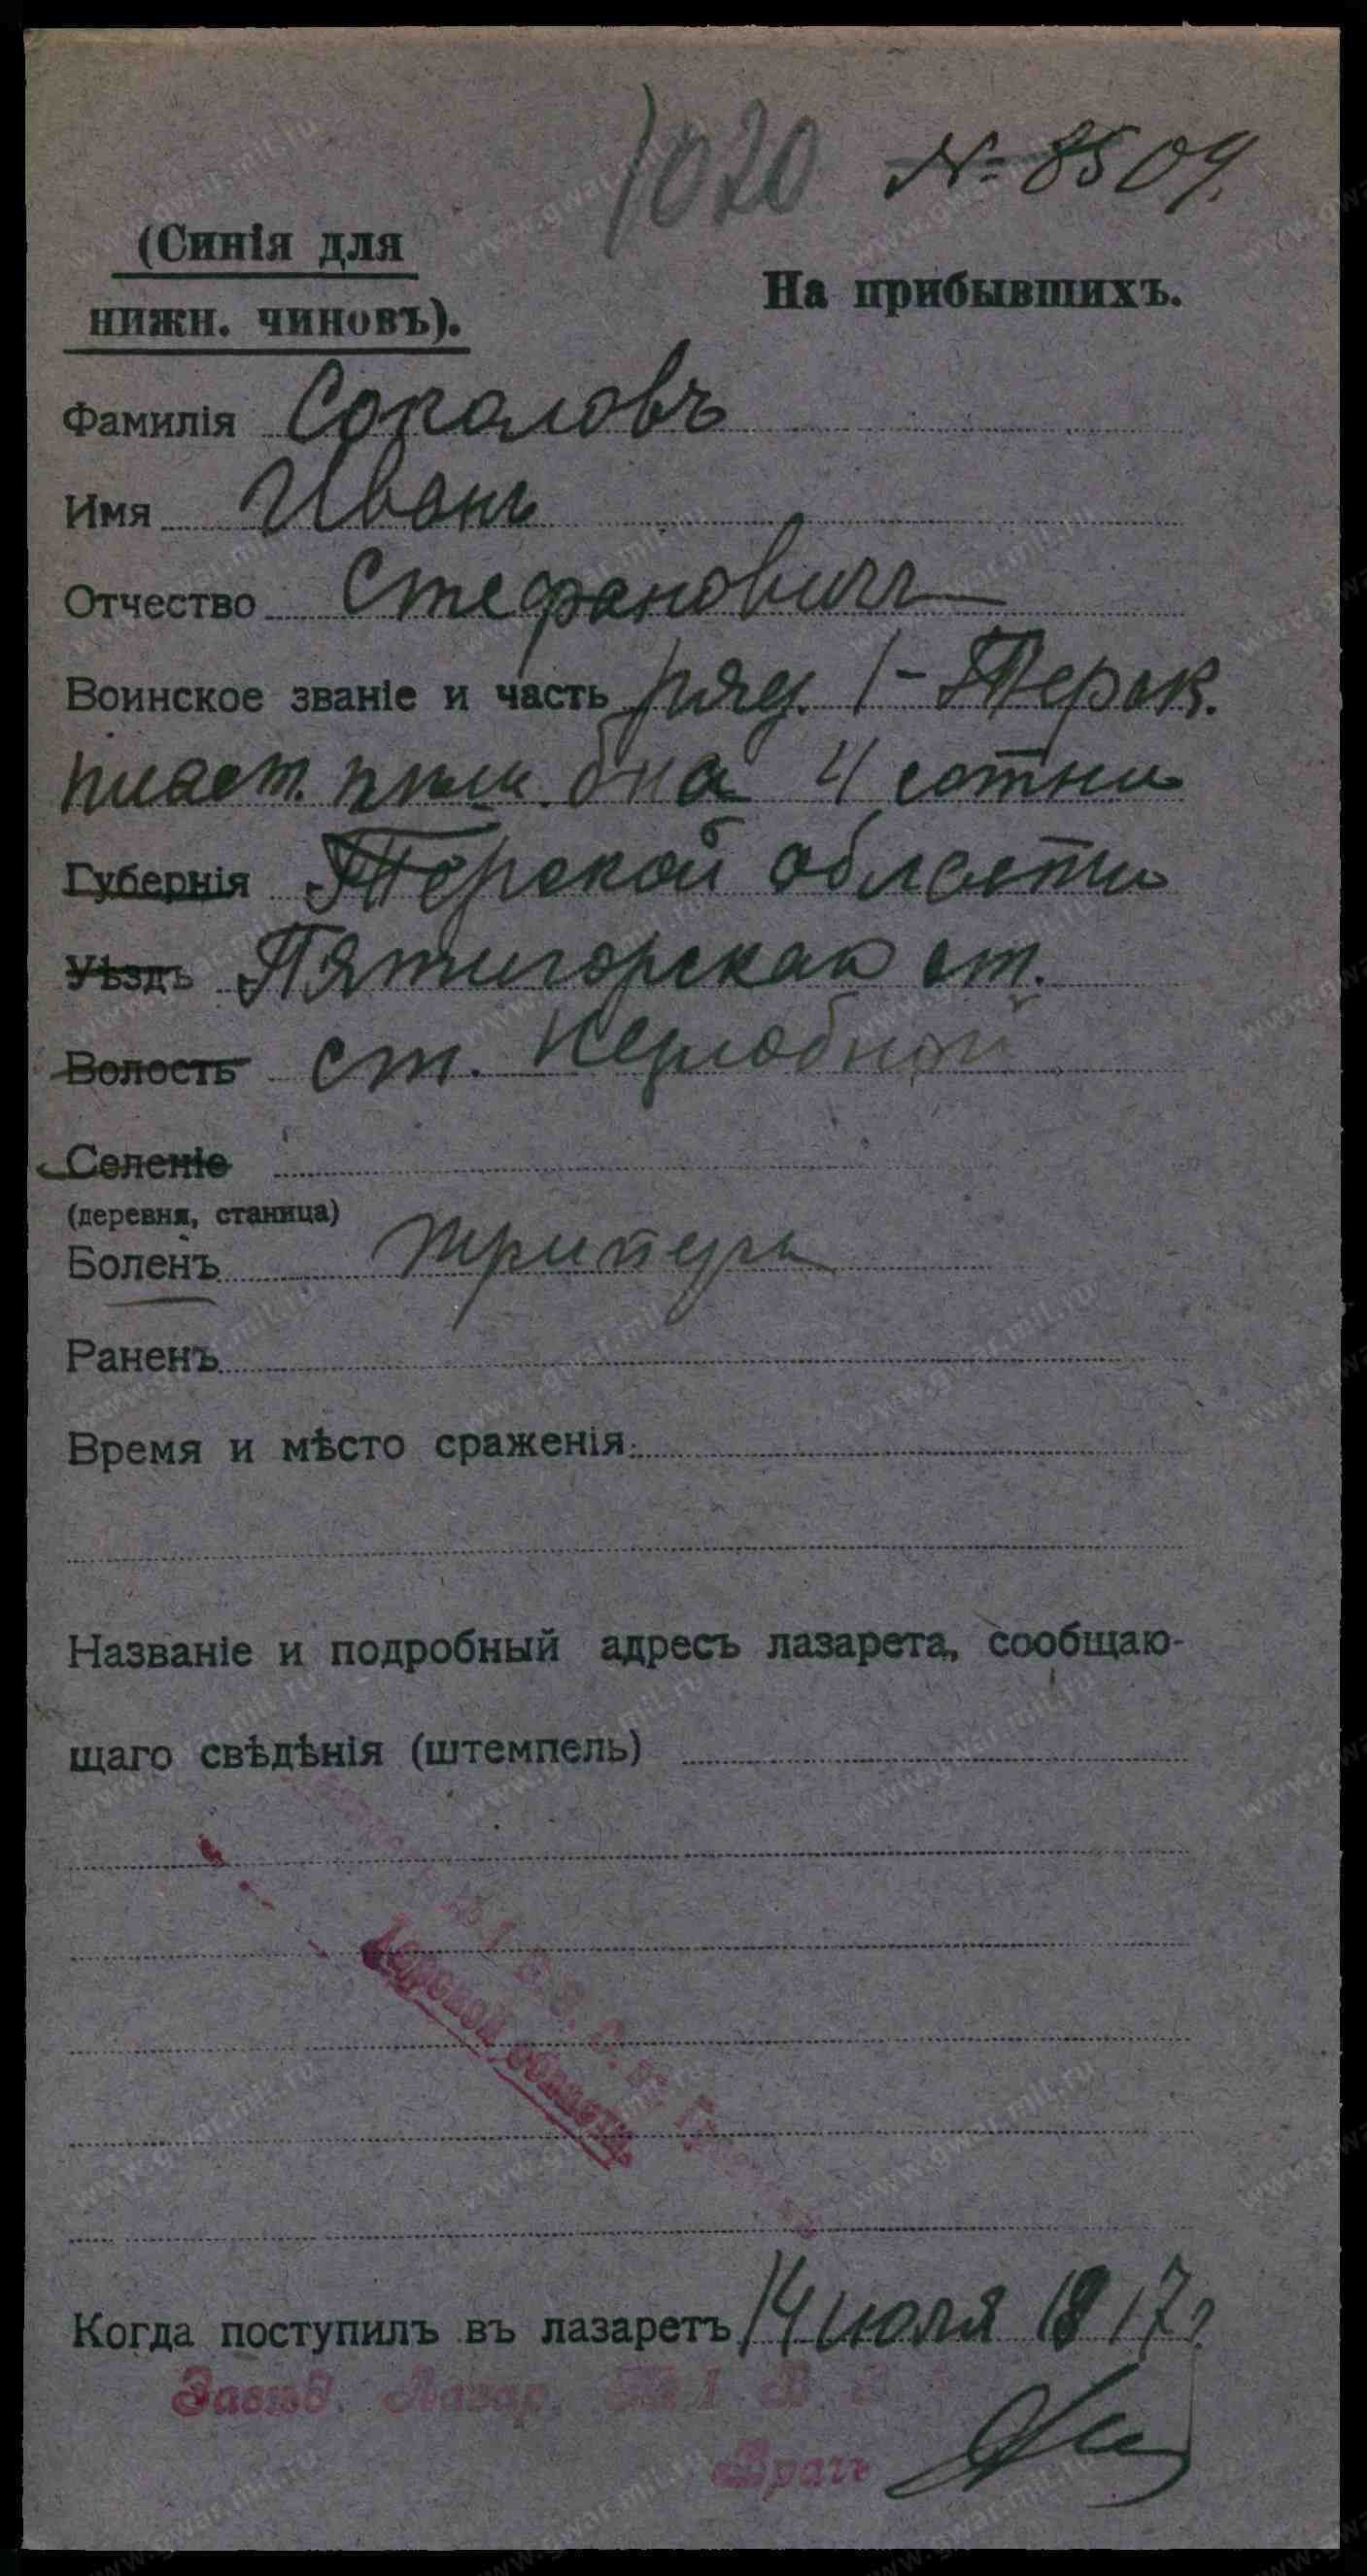 1020 № 8509.
(Синія для
нижн. чиновъ).
На прибывшихъ.
Фамилія Соколовъ
Имя Иванъ
Отчество Стефановичъ
Воинское званіе и часть ряд. 1-Терск.
пласт. б на 4 сотни
Губернія Терской области
Уѣздъ Пятигорская от.
Волость ст. Незлобной
Селеніе
(деревня, станица)
Боленъ трипперъ
Раненъ
Время и мѣсто сраженія:
Названіе и подробный адресъ лазарета, сообщаю-
щаго свѣдѣнія (штемпель)
№ 1 В. З. С.
Терской области.
Когда поступилъ въ лазаретъ 14 июля 1917 г.
Завѣд. Лазар. № 1 В. З.
Врачъ